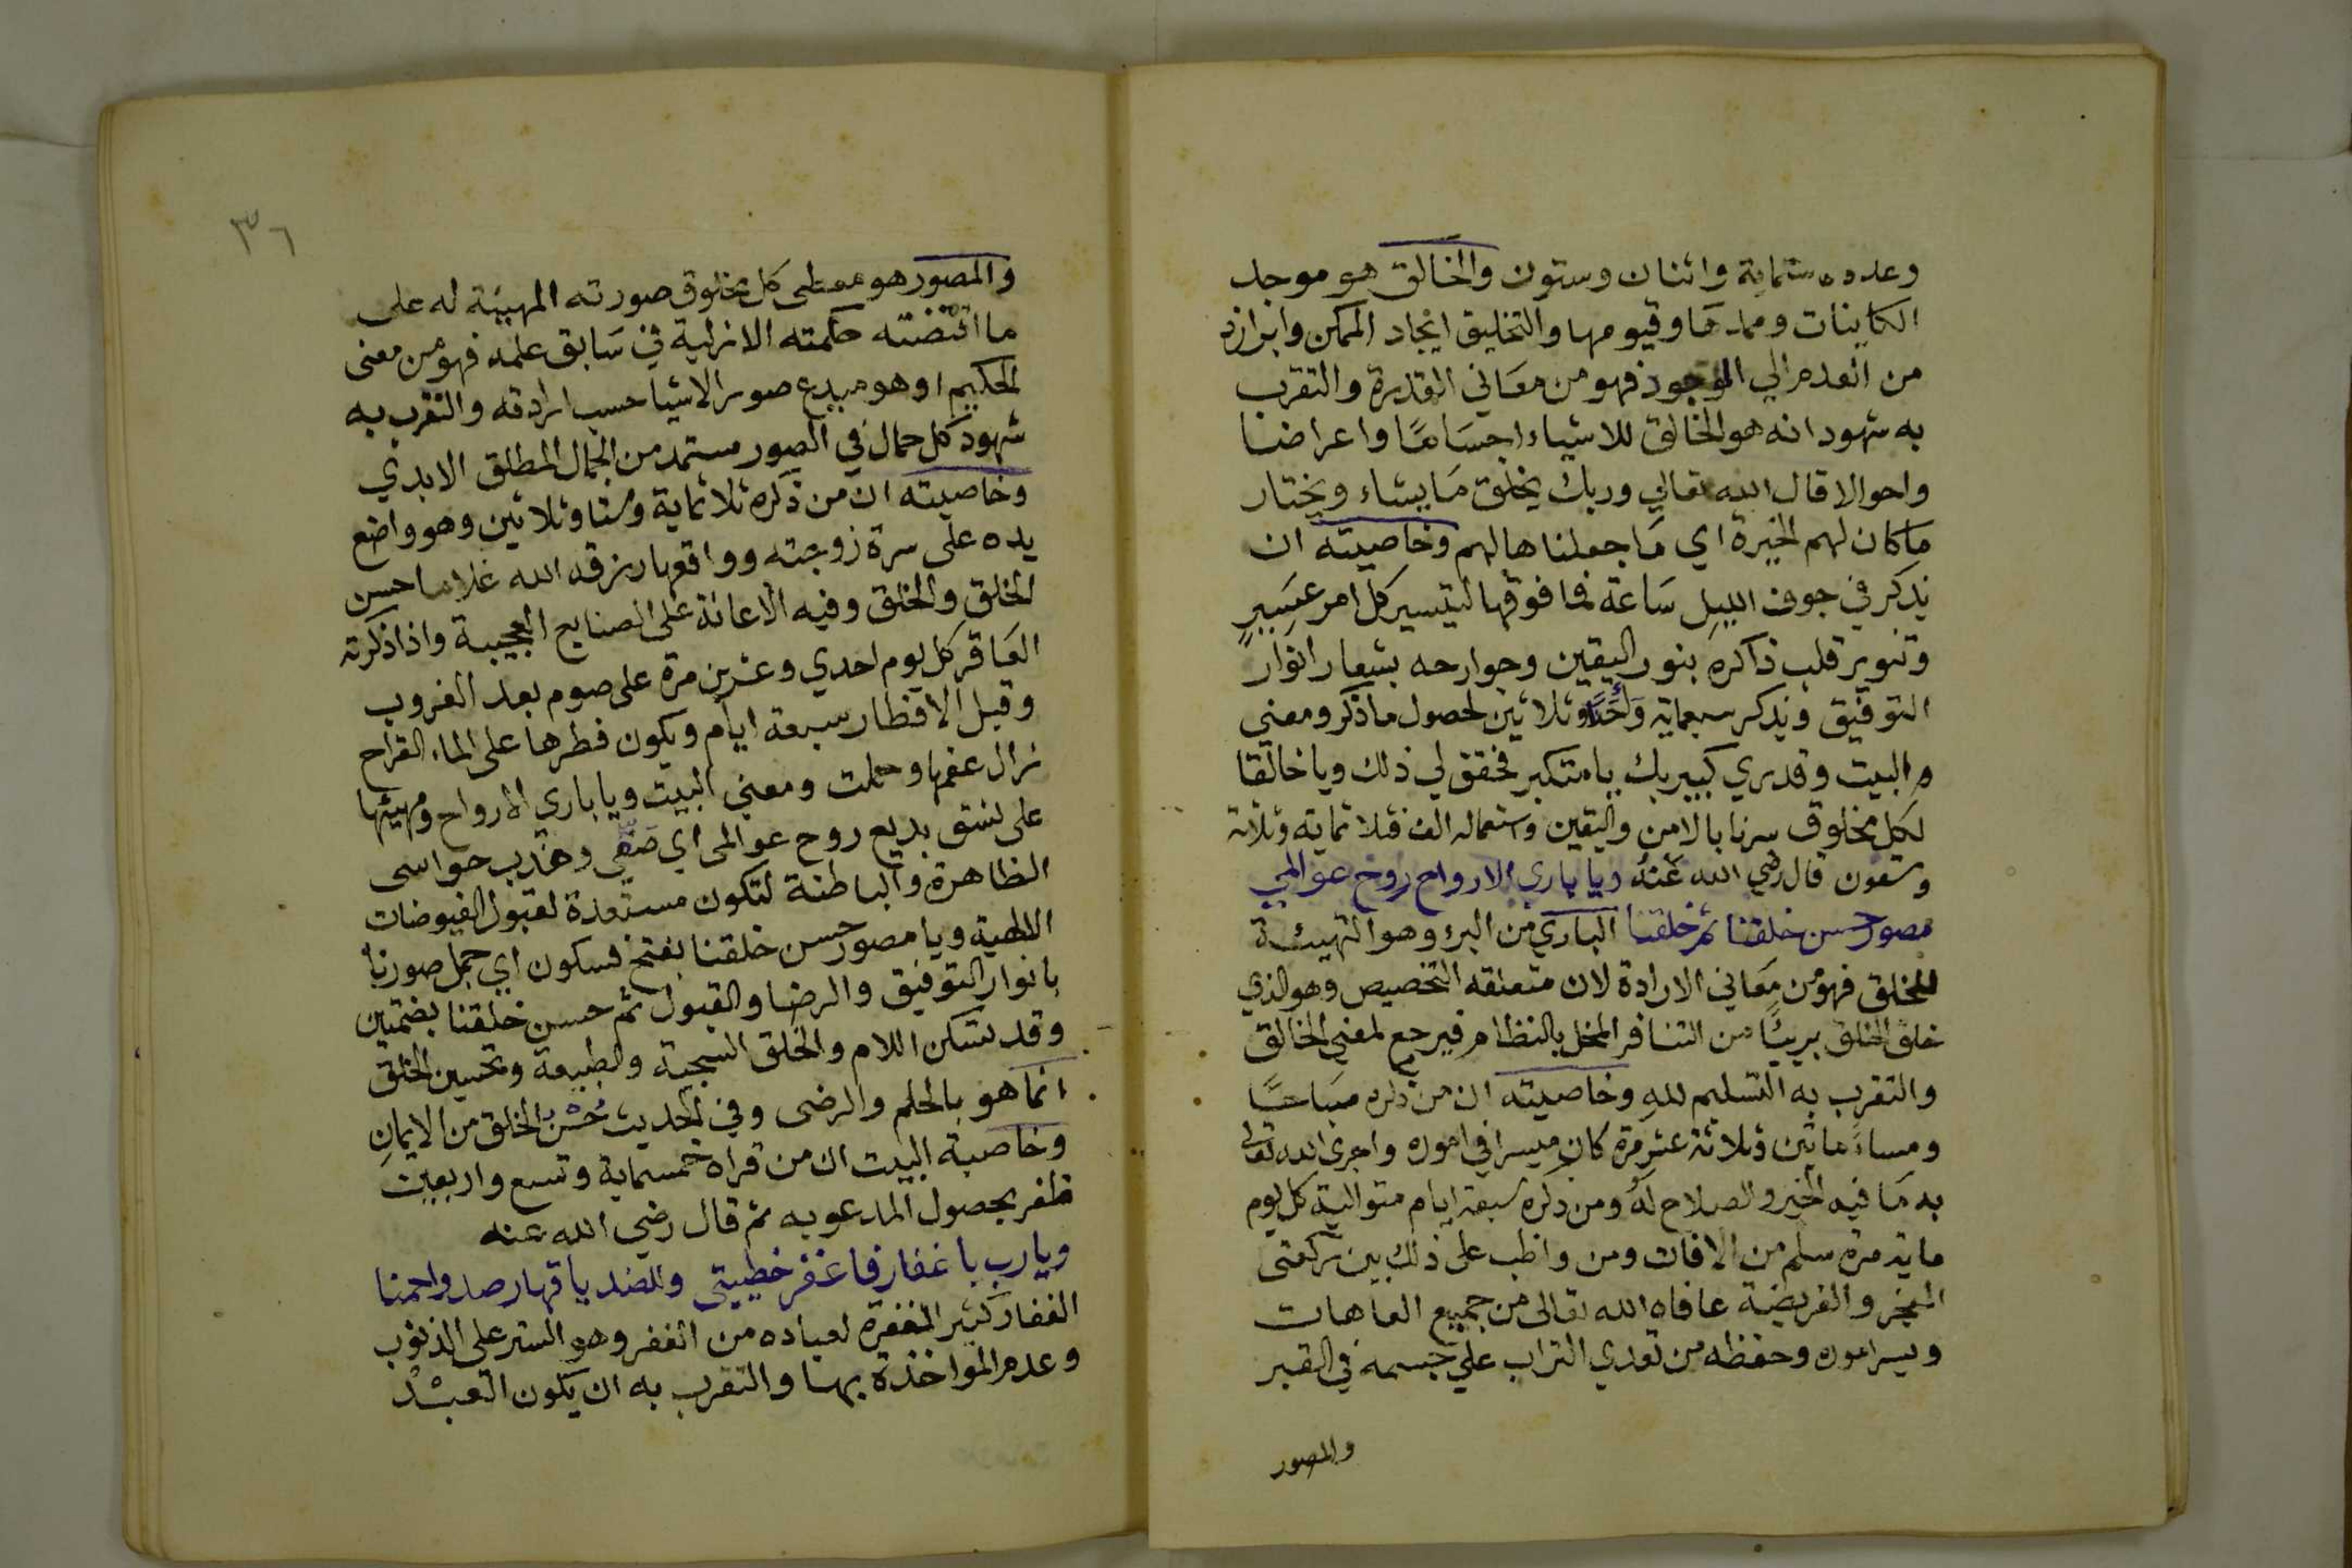 وعدده ستماية واثنان وستون والخالق هو موجد
الكاينات وممدها وقيومها والتخليق ايجاد الممكن وابرازه
من العدم الي الوجود فهو من معاني القدرة والتقرب
به شهود انه هو الخالق للاشياء اجسامًا واعراضا
واحوالا قال الله تعالي وربك يخلق ما يشاء ويختار
ما كان لهم الخيرة اي ما جعلناها لهم وخاصيته ان
يذكر في جوف الليل ساعة فما فوقها لتيسير كل امر عسير
وتنوير قلب ذاكره بنور اليقين وجوارحه بشعار انوار
التوفيق ويذكر سبعماية وأحَدًا وثلاثين لحصول ما ذكر ومعني
البيت وقدري كبير بك يا متكبر فحقق لي ذلك ويا خالقا
لكل مخلوق سرنا بالامن واليقين واستعماله الف وثلاثماية وثلاثة
وتسعون قال رضي الله عَنهُ ويا باري الارواح روح عوالمي
مصور حسن خلقنا ثم خلقنا الباري من البرؤ وهو التهيئة
للخلق فهو من معاني الارادة لان متعلقه التخصيص وهو الذي
خلق الخلق بريئًا من التنافر المخل بالنظام فيرجع لمعني الخالق
والتقرب به التسليم لله وخاصيته ان من ذكره صباحًا
ومساءً مائتين وثلاثة عشر مرة كان ميسرا في اموره واجري الله تعالى
به ما فيه الخير والصلاح له ومن ذكره سبعة ايام متوالية كل يوم
ماية مرة سلم من الافات ومن واظب على ذلك بين ركعتي
الفجر والفريضة عافاه الله تعالى من جميع العاهات
ويسر اموره وحفظه من تعدي التراب علي جسمه في القبر
والمصور
٣٦
والمصور هو معطى كل مخلوق صورته المهيئة له على
ما اقتضته حكمته الازلية في سَابق علمه فهو من معنى
الحكيم او هو مبدع صور الاشيا حسب ارادته والتقرب به
شهود كل جمال في الصور مستمد من الجمال المطلق الابدي
وخاصيته ان من ذكره ثلاثماية وستا وثلاثين وهو واضع
يده على سرة زوجته وواقعها رزقه الله غلاما حسن
الخلق والخلق وفيه الاعانة على الصنايع العجيبة واذا ذكرته
العَاقر كل يوم احدي وعشرين مرة على صوم بعد الغروب
وقبل الافطار سبعة ايام ويكون فطرها على الماء القراح
زال عقمها وحملت ومعني البيت ويا باري الارواح ومهيئها
على نسق بديع روح عوالمى اي صَفّي وهذب حواسى
الظاهرة والباطنة لتكون مستعدة لقبول الفيوضات
اللاهية ويا مصور حسن خلقنا بفتح فسكون اي جمل صورنا
بانوار التوفيق والرضا والقبول ثم حسن خلقنا بضمتين
وقد تسكن اللام والخلق السجية والطبيعة وتحسين الخلق
انما هو بالحلم والرضى وفي الحديث حُسْنُ الخلق من الايمانِ
وخاصية البيت ان من قراه خمسماية وتسع واربعين
ظفر بحصول المدعو به ثم قال رضي الله عنه
ويا رب يا غفار فاغفر خطيئتي وللضد يا قهار صد واحمنا
الغفار كثير المغفرة لعباده من الغفر وهو الستر على الذنوب
وعدم المواخذة بها والتقرب به ان يكون العبْدُ